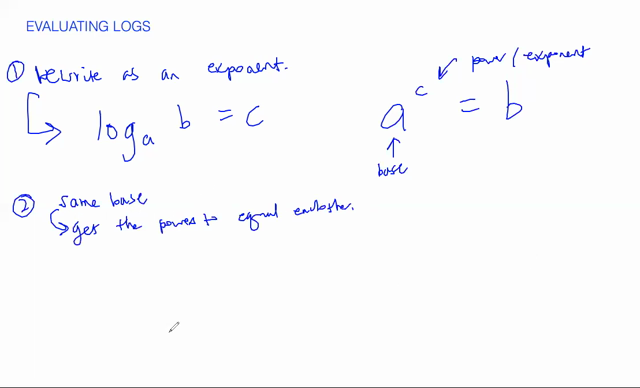 EVALUATING LOGS
① Rewrite as an exponent.
power / exponent
logₐ b = c
aᶜ = b
base
② same base
get the powers to equal eachother.